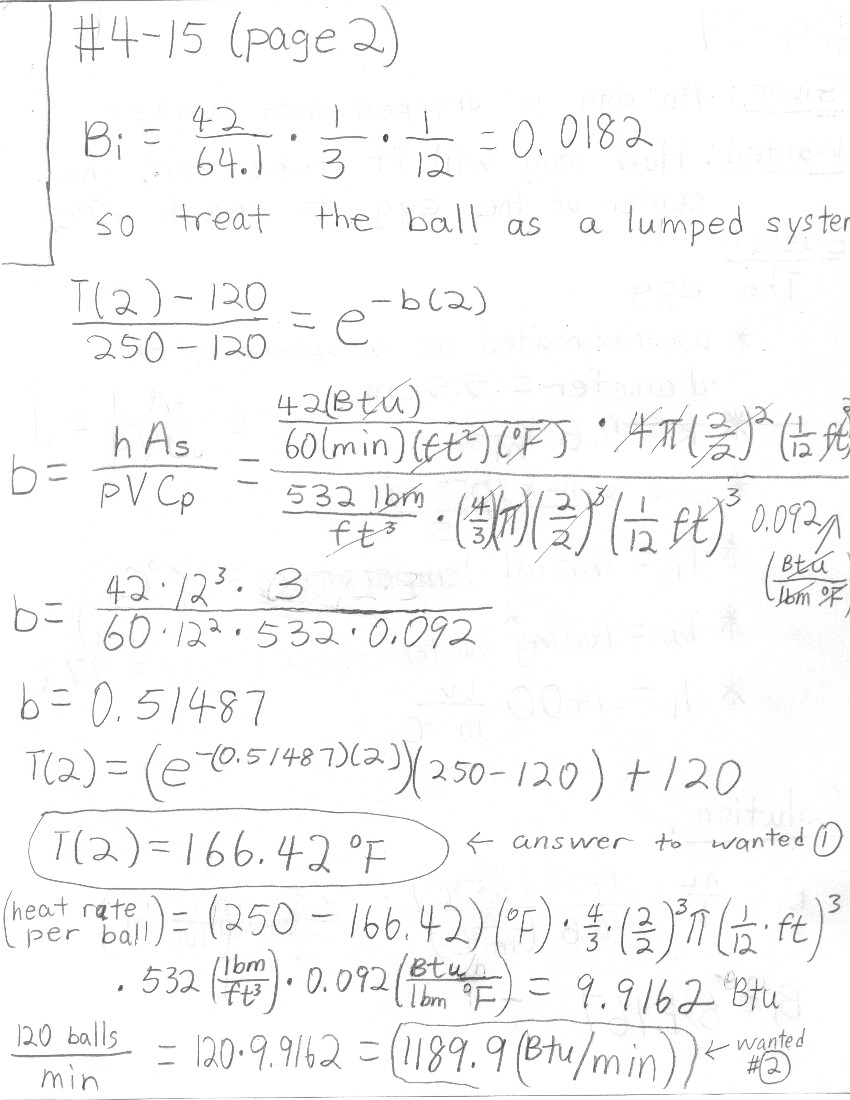 #4-15 (page 2)
Bi = 42/64.1 · 1/3 · 1/12 = 0.0182
so treat the ball as a lumped system
(T(2) - 120)/(250 - 120) = e^(-b(2))
b = hAs/(ρVCp) = (42(Btu)/(60(min)(ft²)(°F)) · 4π(2/2)²(1/12 ft)²)/(532 lbm/ft³ · (4/3)(π)(2/2)³(1/12 ft)³ 0.092 (Btu/lbm °F))
b = (42·12³·3)/(60·12²·532·0.092)
b = 0.51487
T(2) = (e^(-(0.51487)(2)))(250-120) + 120
T(2) = 166.42 °F ← answer to wanted ①
(heat rate per ball) = (250 - 166.42)(°F) · 4/3 · (2/2)³π(1/12 · ft)³
· 532 (lbm/ft³) · 0.092 (Btu/lbm °F) = 9.9162 Btu
120 balls/min = 120·9.9162 = (1189.9 (Btu/min)) ← wanted #②